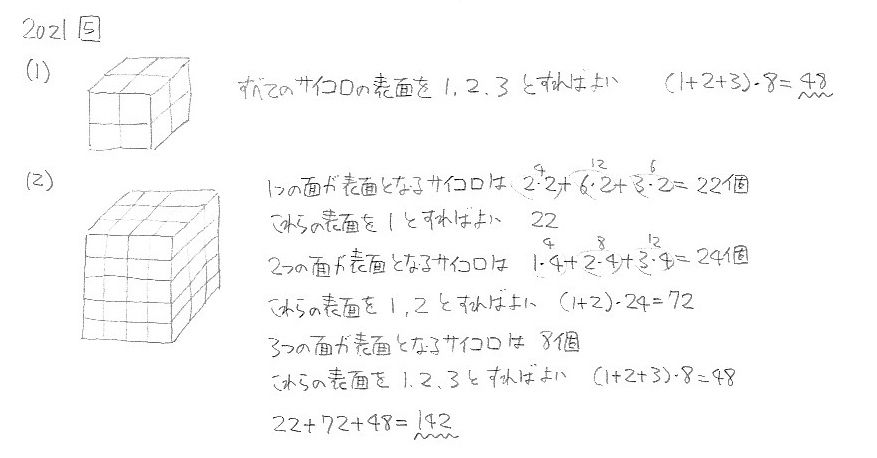 2021 5
(1)
すべてのサイコロの表面を1,2,3とすればよい (1+2+3)・8=48
(2)
1つの面が表面となるサイコロは 2・2+6・2+3・2=22個
4 12 6
これらの表面を1とすればよい 22
2つの面が表面となるサイコロは 1・4+2・4+3・4=24個
4 8 12
これらの表面を1,2とすればよい (1+2)・24=72
3つの面が表面となるサイコロは 8個
これらの表面を1.2.3とすればよい (1+2+3)・8=48
22+72+48=142